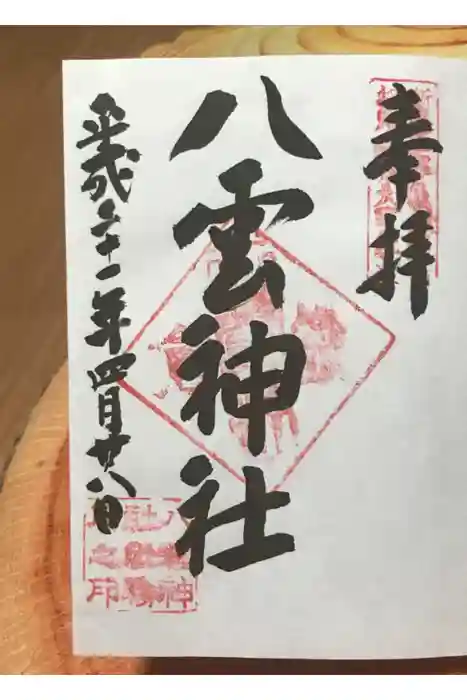 奉拝
八雲神社
平成三十一年四月廿八日
八雲神
社社務
所之印